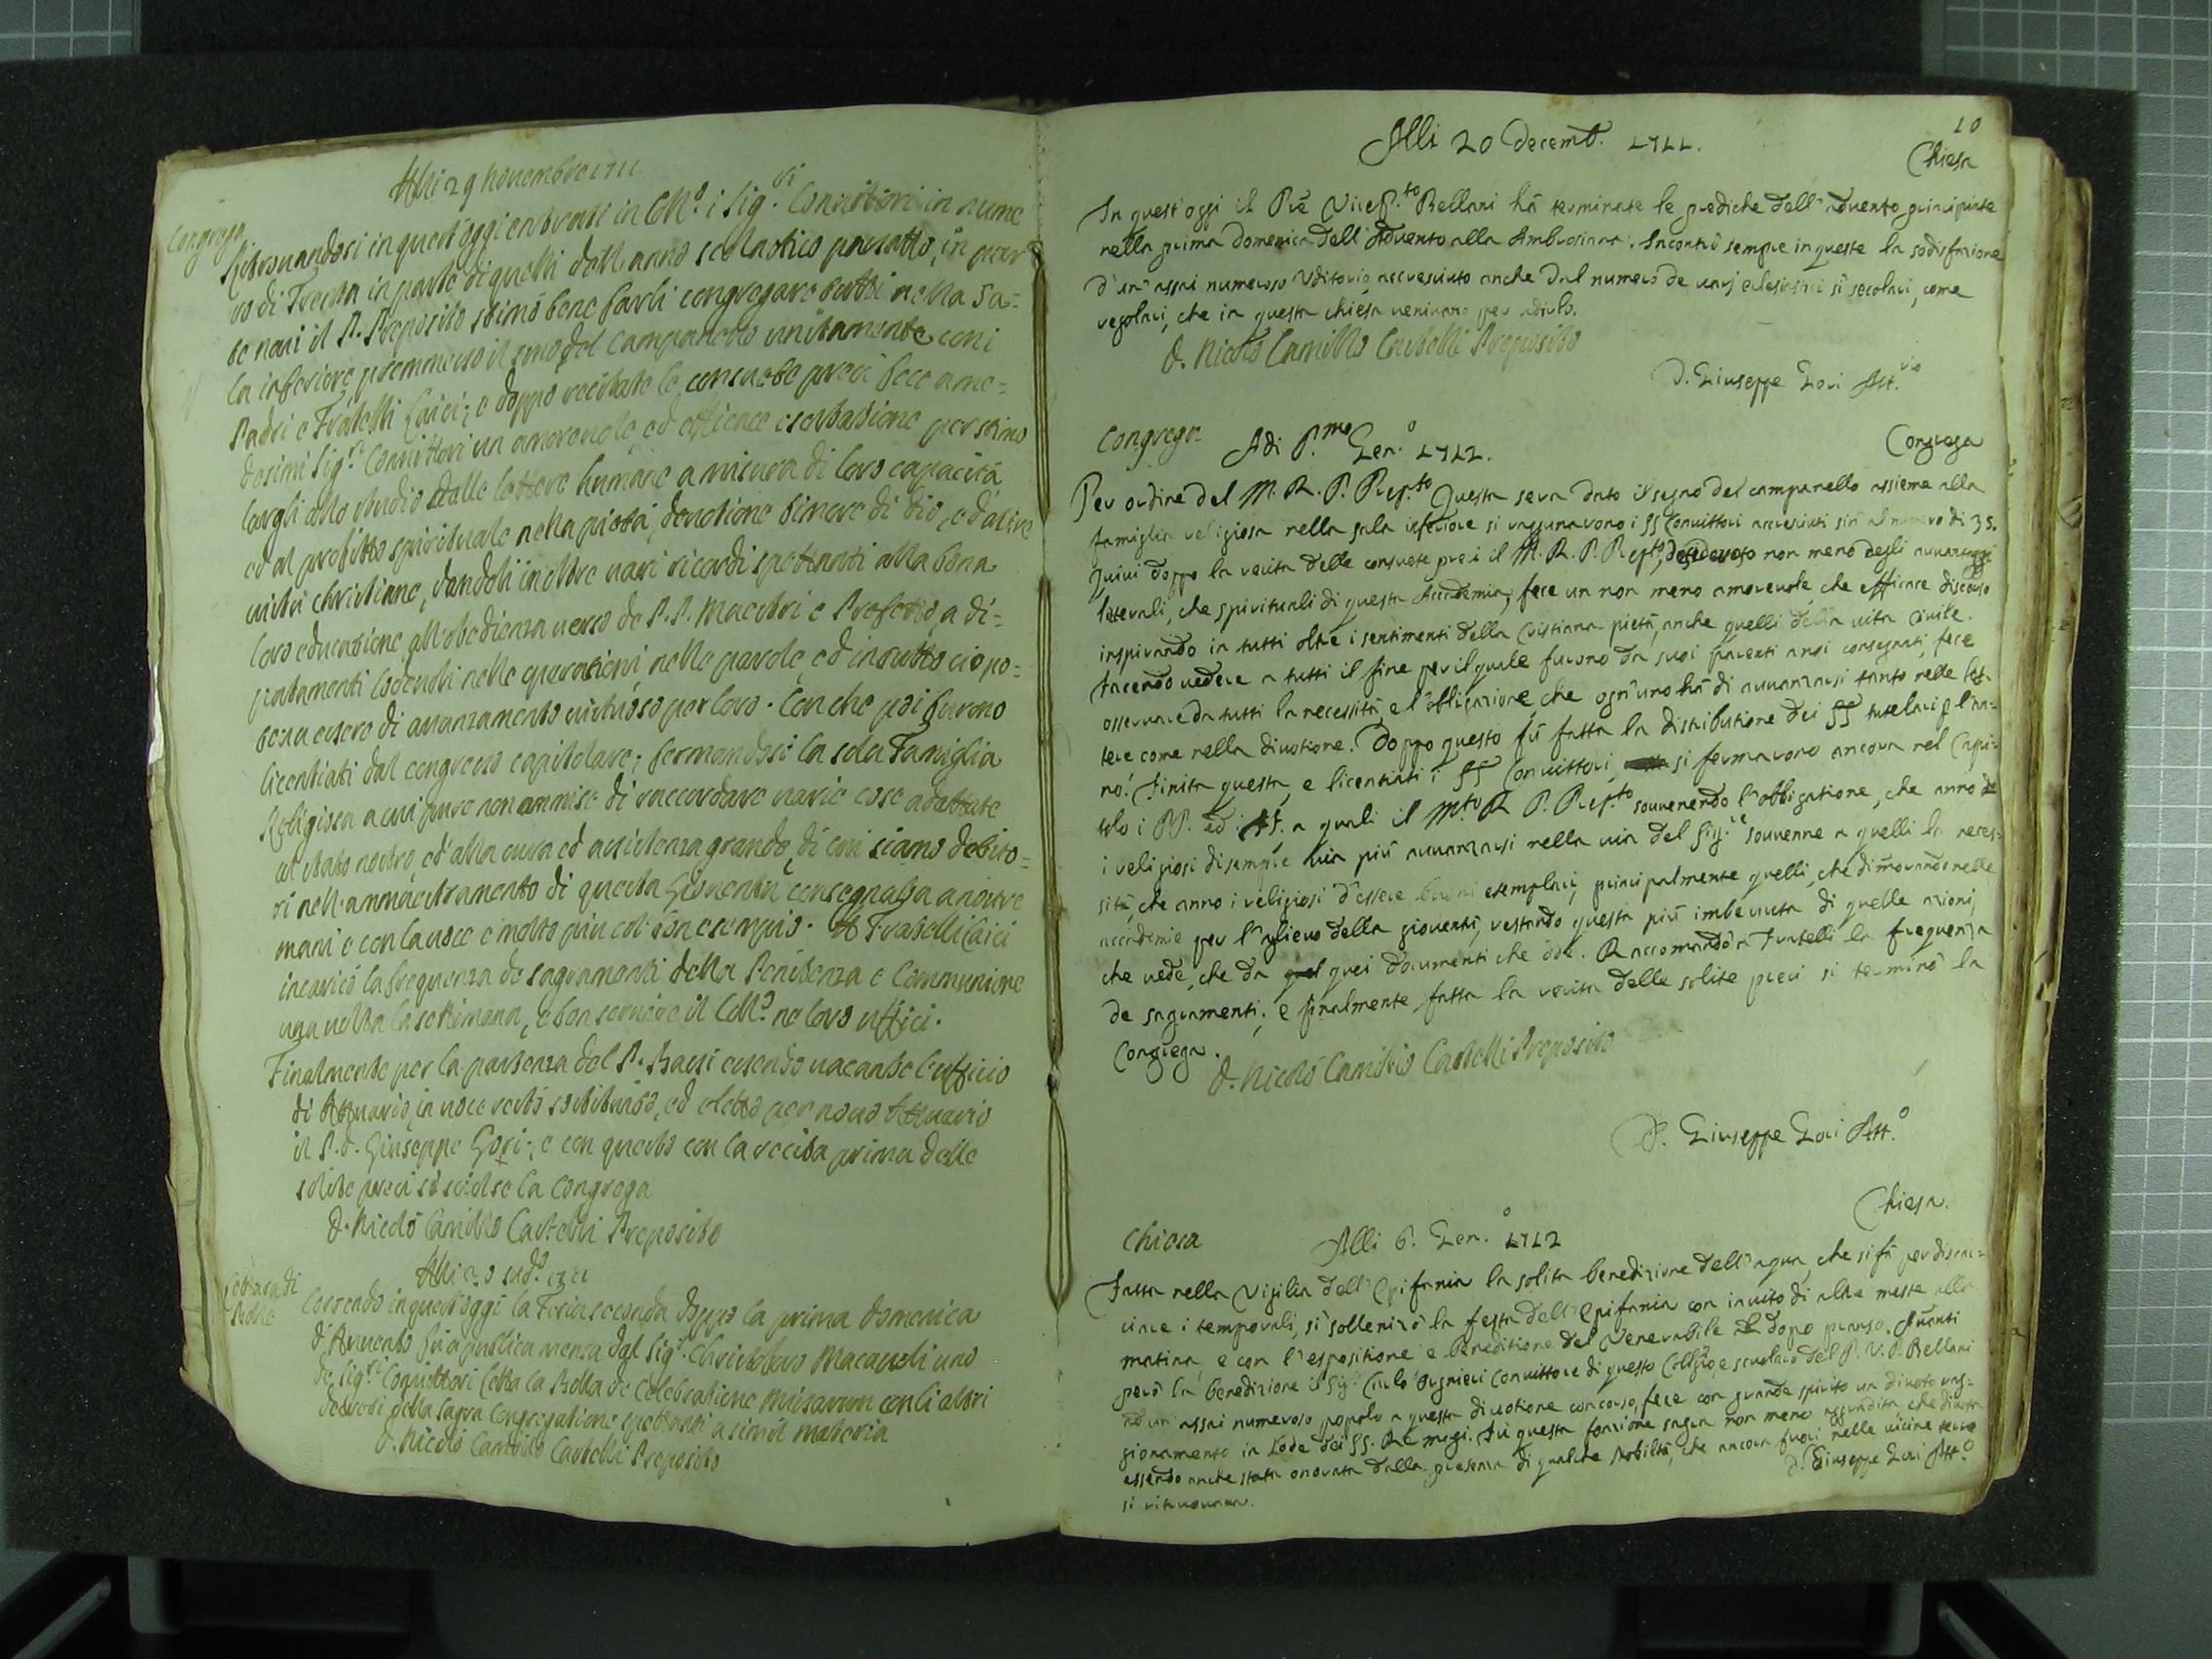 Alli 29 Novembre 1711
Congrega
Ritrovandosi in quest'oggi entrati in Coll.o i Sig.ri Convittori in nume
ro di Trenta in parte di quelli dell anno scolastico passatto, in par
te novi il P. Preposito stimò bene farli congregare tutti nella Sa=
la inferiore, premmesso il suono del Campanello unitamente con i
Padri e Fratelli Laici; e doppo recitate le consuete preci fece a me=
desimi Sig.ri Convittori un amorevole ed efficace esortatione per stimo
largli allo studio delle lettere humane a misura di loro capacità
ed al profitto spirituale nella pietà, devotione timore di Dio, ed altre
virtù christiane, dandoli inoltre vari ricordi spettanti alla bona
loro educatione, all'obedienza verso de P.P. Maestri e Prefetto, a di=
portamenti lodevoli nelle operationi nelle parole, ed in tutto ciò po=
teva essere di avanzamento virtuoso per loro. Con che poi furono
licentiati dal congresso capitolare; fermandosi la sola Famiglia
Religiosa a cui pure non ommise di raccordare varie cose adattate
al stato nostro, ed alla cura ed assistenza grande, di cui siamo debito=
ri nell'ammaestramento di questa Gioventù consegnata a nostre
mani e con la voce e molto più col bon esempio. A Fratelli Laici
incaricò la frequenza de sagramenti della Penitenza e Communione
una volta la settimana, e ben servire il Coll.o ne loro uffici.
Finalmente per la partenza del P. Bassi essendo vacante l'ufficio
di Attuario, in voce restò sostituito, ed eletto per novo Attuario
il P. D. Giuseppe Gori; e con questo con la recita prima delle
solite preci si sciolse la Congrega
D. Nicolò Camillo Castelli Preposito
Alli 30 sud.o 1711
Lettura di
Bolle
Correndo in quest'oggi la Feria seconda doppo la prima domenica
d'Avvento fu a publica mensa dal Sig.r Christoforo Macassoli uno
de Sig.ri Convittori letta la Bolla de Celebratione Missarum con li altri
Decreti della Sagra Congregatione spettanti a simil materia
D. Nicolò Camillo Castelli Preposito
10
Alli 20 Decemb. 1711.
Chiesa
In quest'oggi il Pre Vicep.to Bellani hà terminate le prediche dell'advento principiate
nella prima domenica dell'Advento alla Ambrosiana. Incontrò sempre in queste la sodisfazione
d'un assai numeroso Uditorio, accresciuto anche dal numero de varj eclesiastici sì secolari, come
regolari, che in questa chiesa venivano per udirlo.
D. Nicolò Camillo Castelli Preposito
D. Giuseppe Gori Att.rio
Congrega
Adi P.mo Gen.o 1712.
Congrega
Per ordine del M. R. P. Prep.to Questa sera dato il segno del campanello assieme alla
famiglia religiosa nella sala inferiore si ragunarono i SS Convittori accresciuti sin al numero di 35.
Quivi doppo la recita delle consuete preci il M. R. P. Prep.to, desideroso non meno degli avvantaggi
letterali, che spirituali di questa Accademia, fece un non meno amorevole, che efficace discorso
inspirando in tutti oltre i sentimenti della Cristiana pietà, anche quelli della vita civile.
Facendo vedere a tutti il fine per il quale furono da suoi parenti a noi consegnati, fece
osservare da tutti la necessità e l'obligazione, che ogn'uno hà di avvanzarsi tanto nelle let-
tere come nella divotione. Doppo questo fù fatta la distributione dei SS tutelari p l'an-
no. Finita questa, e licentiati i SS Convittori, si fermarono ancora nel Capi-
tolo i PP. ed i FF. a quali il M.to R P. Prep.to sovvenendo l'obbligatione, che anno
i religiosi di sempre via più avvanzarsi nella via del Sig.re sovvenne a quelli la neces-
sità, che anno i religiosi d'essere buoni esemplari, principalmente quelli, che dimorando nelle
accademie per l'alievo della gioventù, restando questa più imbevuta di quelle azioni,
che vede, che da quei documenti che ode. Raccomandò a Fratelli la frequenza
de sagramenti; e finalmente fatta la recita delle solite preci si terminò la
Congrega.
D. Nicolò Camillo Castelli Preposito
D. Giuseppe Gori Att.o
Chiesa
Alli 6. Gen.o 1712
Chiesa.
Fatta nella Vigilia dell'Epifania la solita benedizione dell'aqua, che si fà per discac=
ciare i temporali, si sollenizò la festa dell'Epifania con invito di altre messe alla
matina, e con l'espositione e benedizione del Venerabile il dopo pranso. Avanti
però la benedizione il Sig. Carlo Convittore di questo Collegio, e scuolaro del P. V. P. Bellani
ad un assai numeroso popolo a questa divotione concorso, fece con grande spirito un divoto rag-
gionamento in Lode dei SS. Re Magi. Fù questa fonzione sagra non meno aggradita che divota
essendo anche stata onorata dalla presenza di qualche Nobiltà, che ancora fuori nelle vicine terre
si ritrovava.
D. Giuseppe Gori Att.o